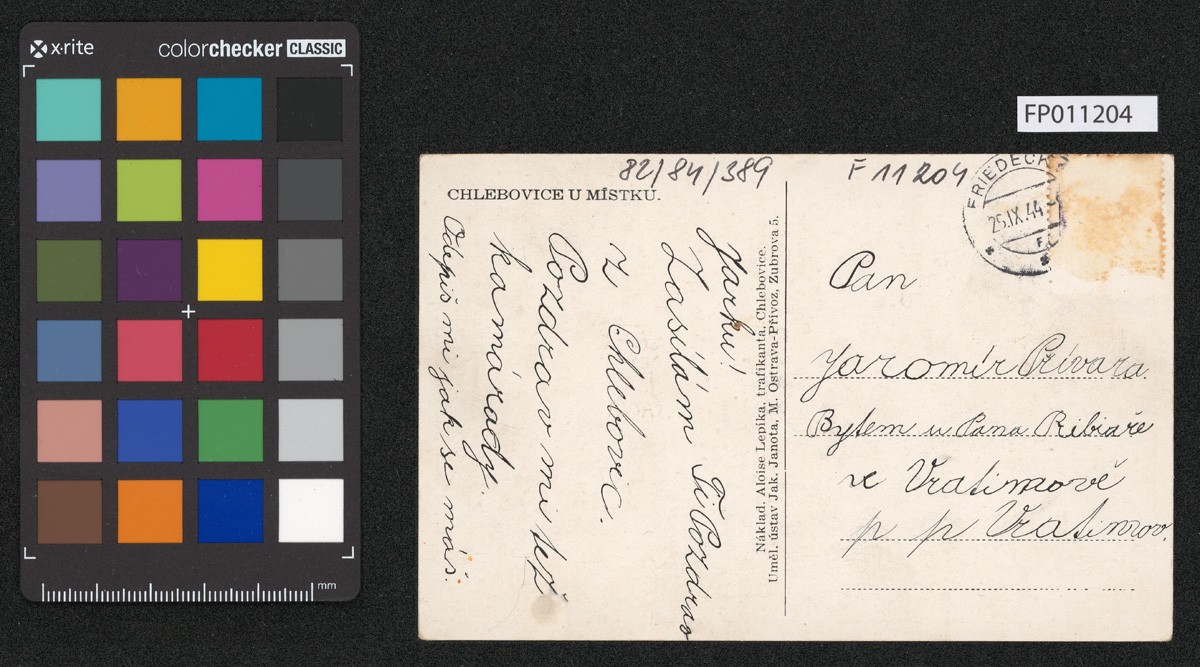 x·rite
colorchecker CLASSIC
mm
FP011204
82/84/389
F 11204
CHLEBOVICE U MÍSTKU.
FRIEDECK
25.IX.44
Jarku!
Zasílám Ti Pozdrav
z Chlebovic.
Pozdrav mi též
kamárady.
Odepiš mi jak se máš.
Náklad. Aloise Lepika, trafikanta, Chlebovice.
Uměl. ústav Jak. Janota, M. Ostrava-Přívoz, Zubrova 5.
Pan
Jaromír Přívara
Bytem u Pana Ribiaře
ve Vratimově
p p Vratimov.